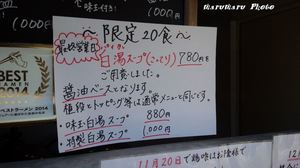 Karukaru Photo
味玉付
～限定20食～
最終営業日
白湯スープ(こってり) 780円を
ご用意しました。
醤油ベースとなります。
値段やトッピング等は通常メニューと同じです。
・味玉白湯スープ 880円
・特製白湯スープ 1,000円
BEST
RAMEN
ベストラーメン 2014
11月20日で鶏味はお陰様で
12